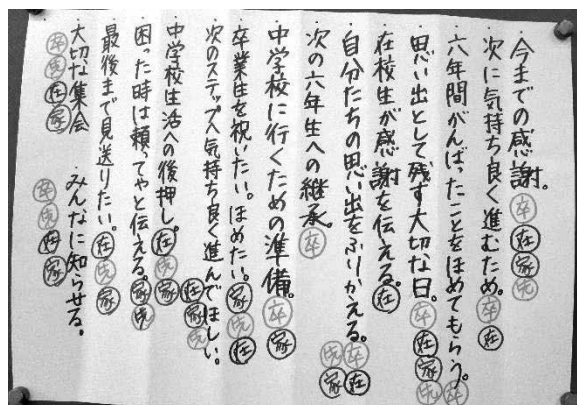 ・今までの感謝。卒在家先
・次に気持ち良く進むため。卒在
・六年間がんばったことをほめてもらう。卒
・思い出として残す大切な日。卒在家先
・在校生が感謝を伝える。在
・自分たちの思い出をふりかえる。卒在先家
・次の六年生への継承。卒
・中学校に行くための準備。卒家
・卒業生を祝いたい。ほめたい。家先在
・次のステップへ気持ち良く進んでほしい。在家先
・中学校生活への後押し。在先家
・困った時は頼ってやと伝える。家先
・最後まで見送りたい。在先家
・大切な集会 卒先在家
・みんなに知らせる。卒先在家